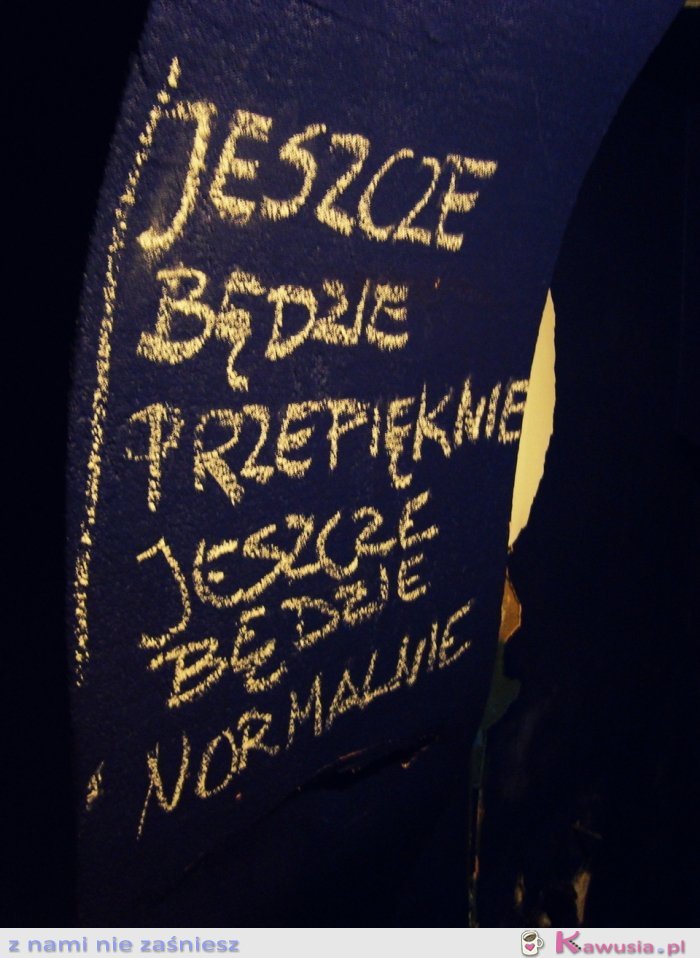 JESZCZE
BĘDZIE
PRZEPIĘKNIE
JESZCZE
BĘDZIE
NORMALNIE
z nami nie zaśniesz
Kawusia.pl